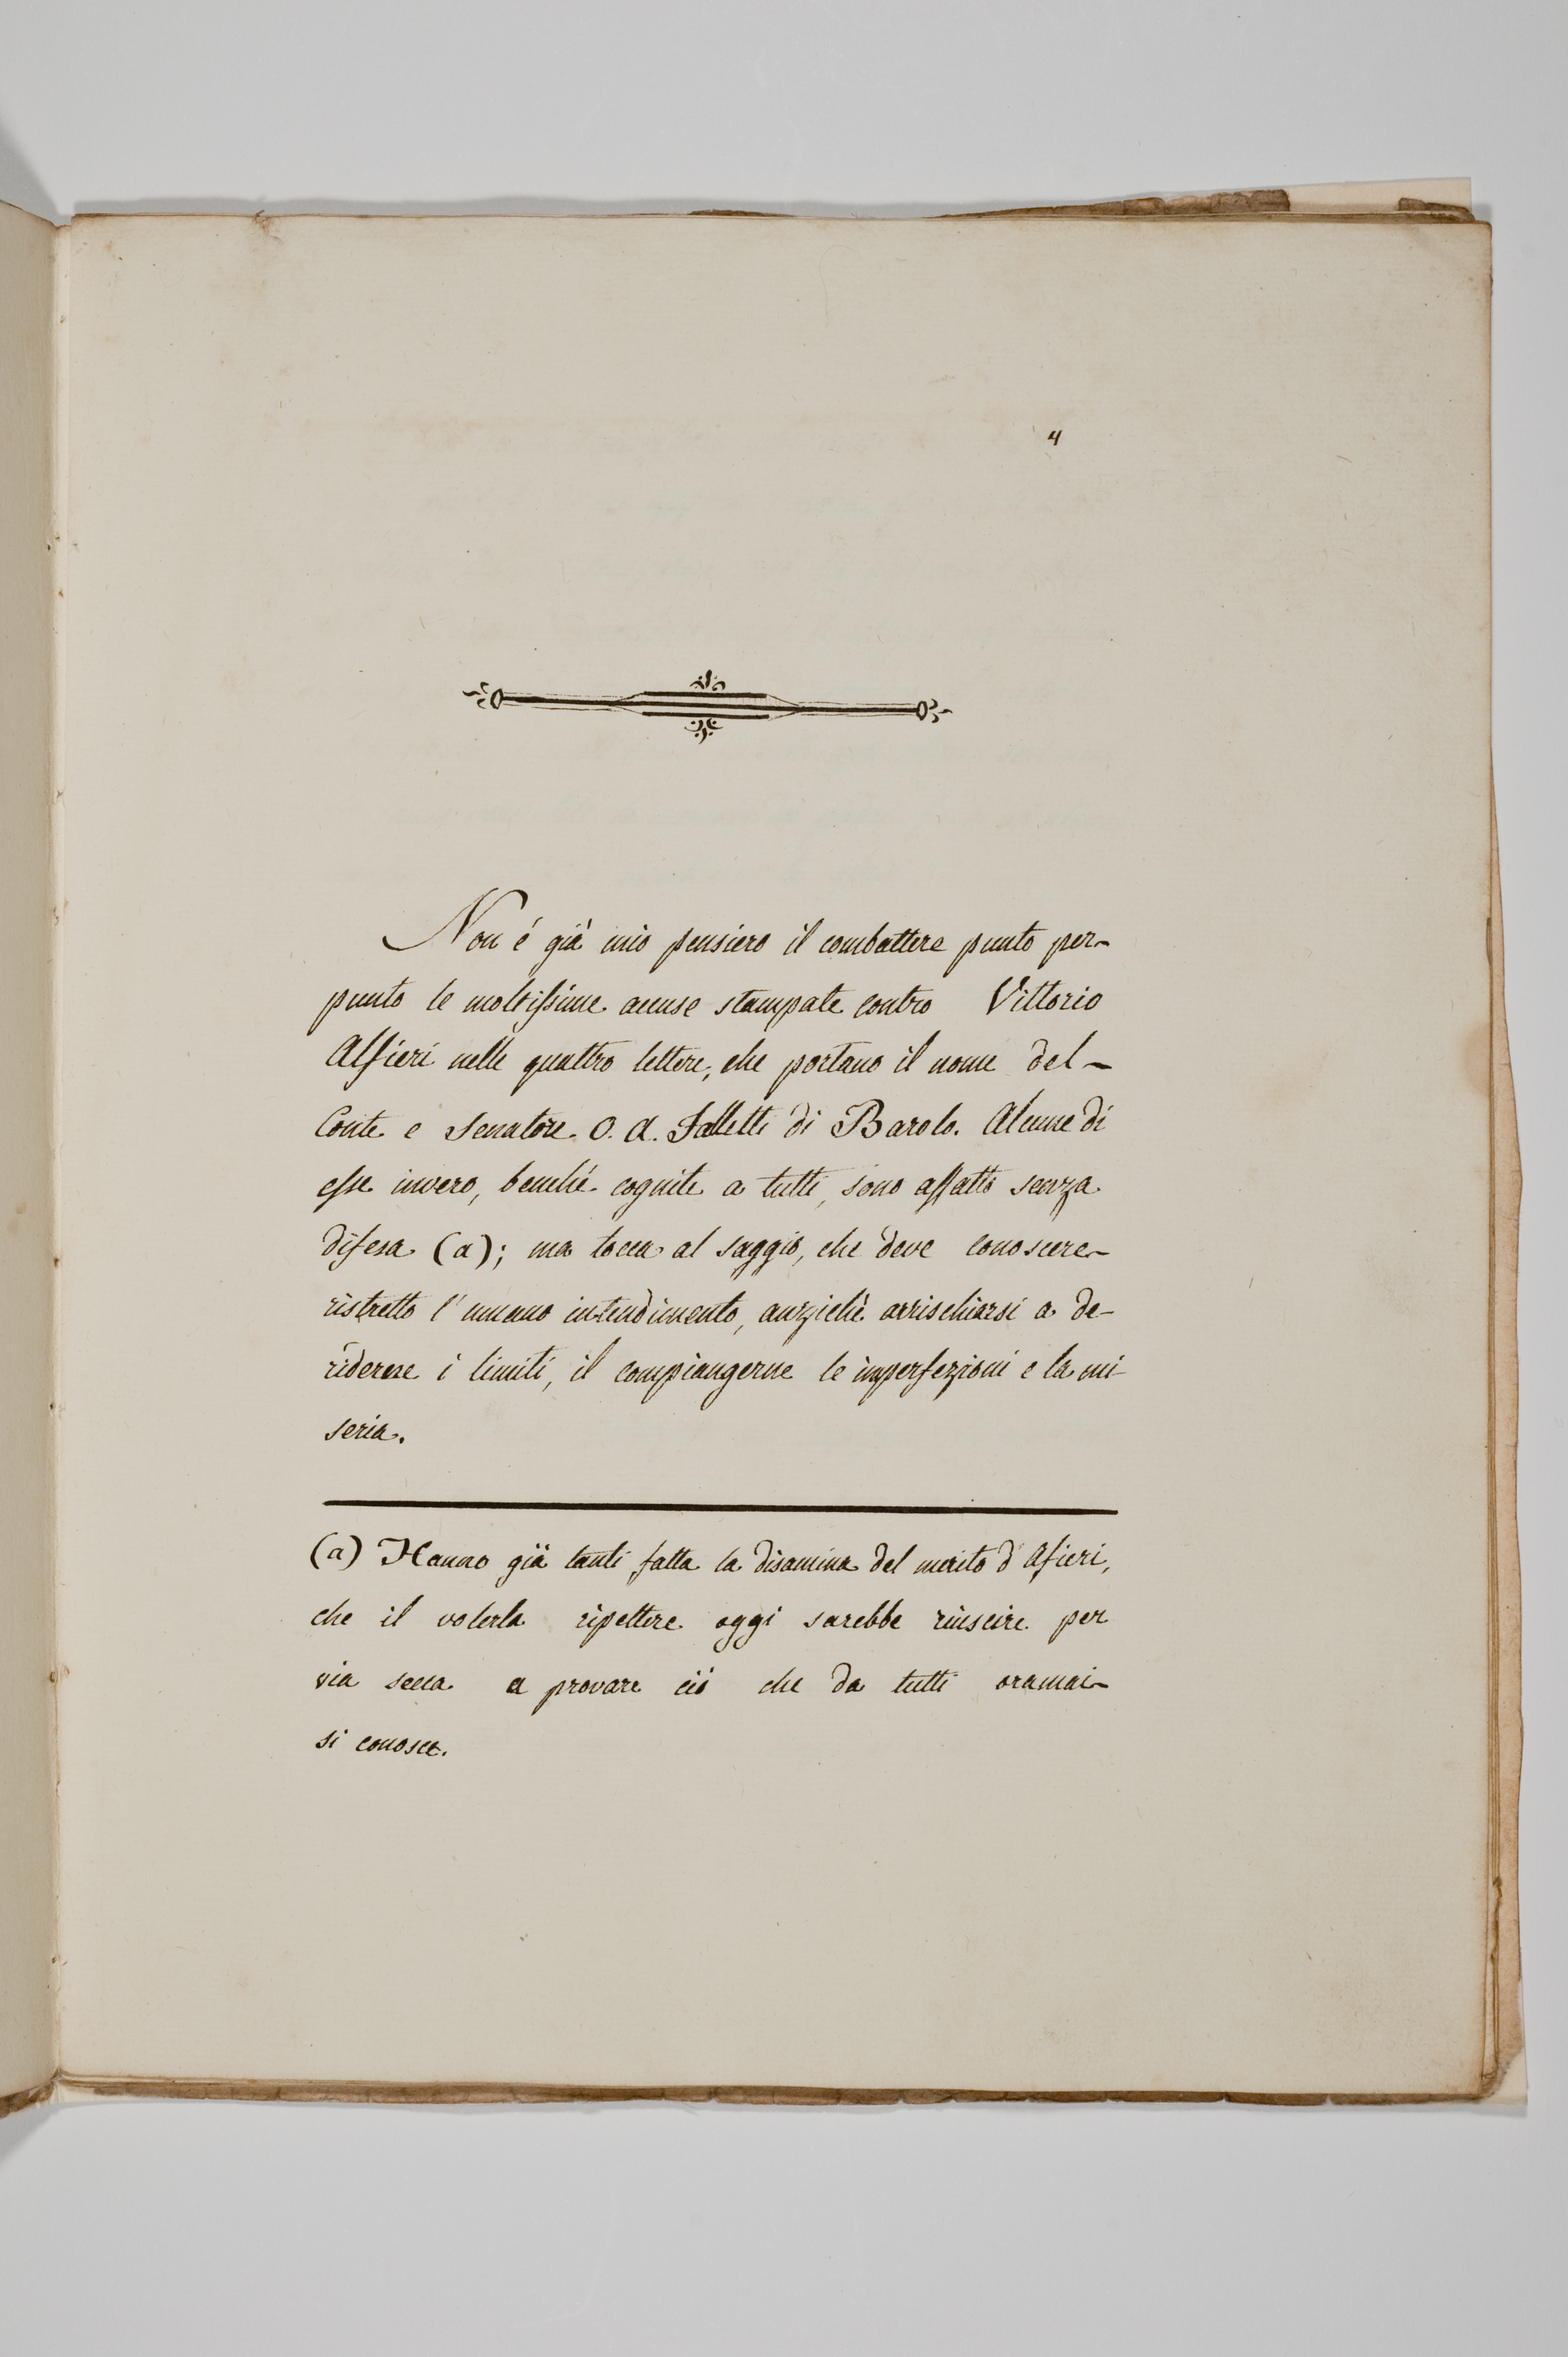 4
Non é già mio pensiero il combattere punto per-
punto le moltissime accuse stampate contro Vittorio
Alfieri nelle quattro lettere, che portano il nome del-
Conte e Senatore O. A. Falletti di Barolo. Alcune di
esse invero, benché cognite a tutti, sono affatto senza
difesa (a); ma tocca al saggio, che deve conoscere-
ristretto l'umano intendimento, anziché arrischiarsi a de-
riderne i limiti, il compiangerne le imperfezioni e la mi-
seria.
(a) Hanno già tanti fatta la disamina del merito d'Afieri,
che il volerla ripettere oggi sarebbe riuscire per
via secca a provare ciò che da tutti oramai-
si conosce.